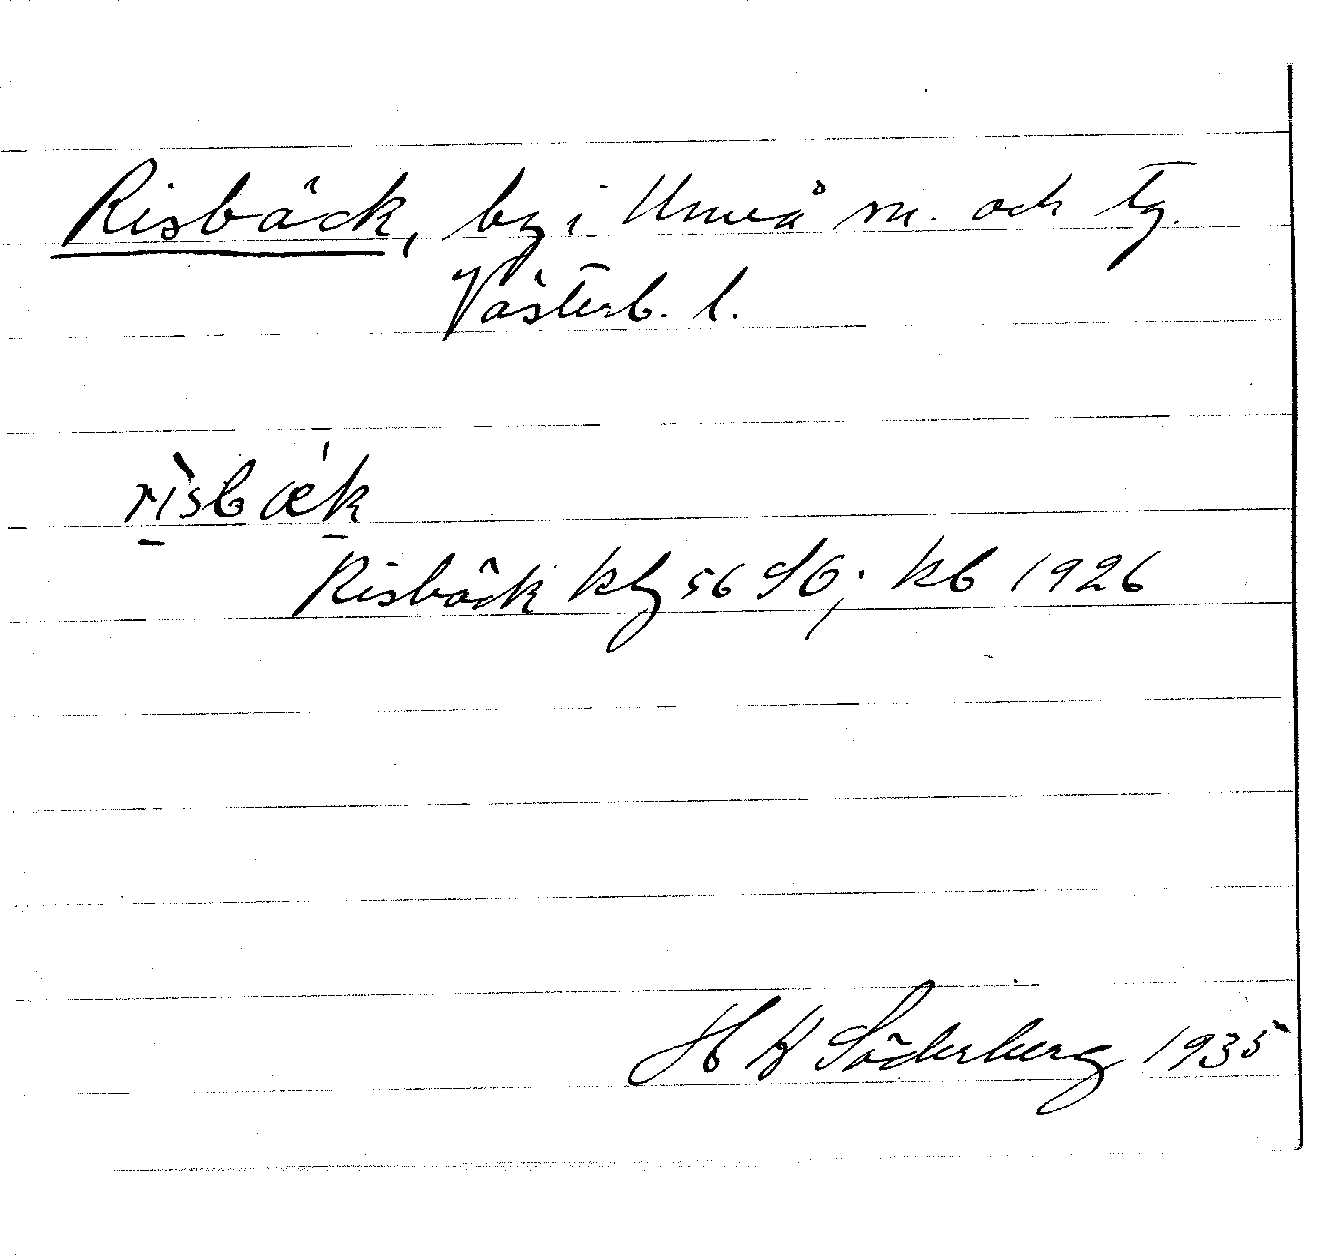 Risbäck, by i Umeå sn. och tg.
Västerb. l.
rìsbæ̀k
Risbäck kbg 56 SO; kb 1926
H W Söderberg 1935